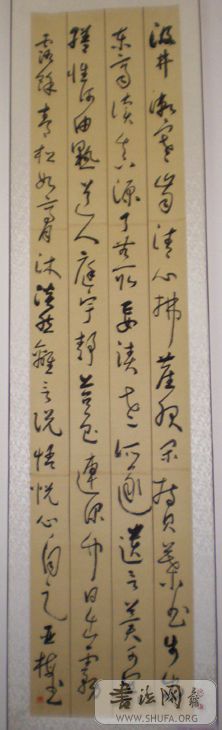 汲井漱寒齿清心拂尘服闲持贝叶书步出
东斋读真源了无取妄迹世所逐遗言冀可
缮性何由熟道人庭宇静苔色连深竹日出雾
露余青松如膏沐淡然离言说悟悦心自足 亚梅书
书法网
WWW.SHUFA.ORG